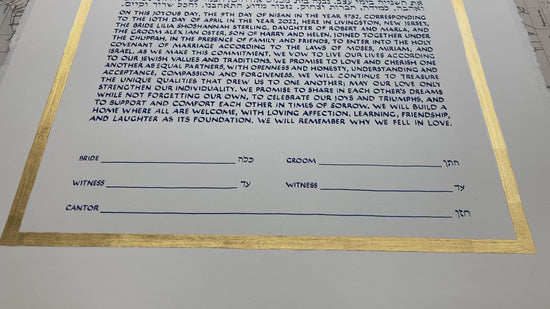 ON THIS JOYOUS DAY, THE 9TH DAY OF NISAN IN THE YEAR 5782, CORRESPONDING
TO THE 10TH DAY OF APRIL IN THE YEAR 2022, HERE IN LIVINGSTON, NEW JERSEY,
THE BRIDE LILIA SHOSHANNAH STERLING, DAUGHTER OF ROBERT AND MARLA, AND
THE GROOM ALEX IAN OSTER, SON OF HARRY AND HELEN, JOINED TOGETHER UNDER
THE CHUPPAH, IN THE PRESENCE OF FAMILY AND FRIENDS, TO ENTER INTO THE HOLY
COVENANT OF MARRIAGE ACCORDING TO THE LAWS OF MOSES, MIRIAM, AND
ISRAEL. AS WE MAKE THIS COMMITMENT, WE VOW TO LIVE OUR LIVES ACCORDING
TO OUR JEWISH VALUES AND TRADITIONS. WE PROMISE TO LOVE AND CHERISH ONE
ANOTHER AS EQUAL PARTNERS, WITH OPENNESS AND HONESTY, UNDERSTANDING AND
ACCEPTANCE, COMPASSION AND FORGIVENESS. WE WILL CONTINUE TO TREASURE
THE UNIQUE QUALITIES THAT DREW US TO ONE ANOTHER; MAY OUR LOVE ONLY
STRENGTHEN OUR INDIVIDUALITY. WE PROMISE TO SHARE IN EACH OTHER'S DREAMS
WHILE NOT FORGETTING OUR OWN, TO CELEBRATE OUR JOYS AND TRIUMPHS, AND
TO SUPPORT AND COMFORT EACH OTHER IN TIMES OF SORROW. WE WILL BUILD A
HOME WHERE ALL ARE WELCOME, WITH LOVING AFFECTION, LEARNING, FRIENDSHIP,
AND LAUGHTER AS ITS FOUNDATION. WE WILL REMEMBER WHY WE FELL IN LOVE.
BRIDE כלה GROOM חתן
WITNESS עד WITNESS עד
CANTOR חזן